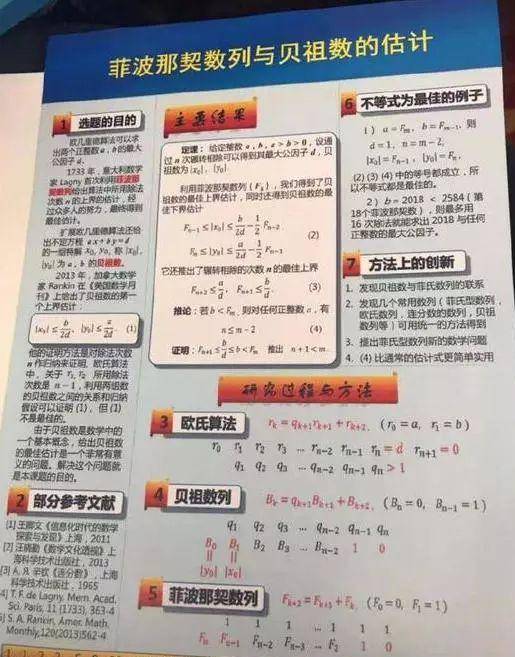 菲波那契数列与贝祖数的估计
1 选题的目的
欧几里德算法可以求
出两个正整数 a , b 的最大
公因子 d.
1733 年，意大利数学
家 Lagny 首次利用菲波那
契数列给出算法中所用除法
次数 n 的上界的估计，经
过众多人的努力，最终得到
最佳估计。
扩展欧几里德算法还给
出不定方程 ax+by=d
的一组特解 x₀, y₀, 称 |x₀|,
|y₀| 为 a, b 的贝祖数。
2013 年，加拿大数学
家 Rankin 在《美国数学月
刊》上给出了贝祖数的第一
个上界估计:
|x₀| ≤ b/2d, |y₀| ≤ a/2d. (1)
他的证明方法是对除法次数
n 作归纳来证明, 欧氏算法
中，关于 r₁, r₂ 所用除法
次数是 n − 1，利用两组数
的贝祖数之间的关系和归纳
假设可以证明 (1)，但 (1)
不是最佳的。
由于贝祖数是数学中的
一个基本概念，给出贝祖数
的最佳估计是一个非常有意
义的问题。解决这个问题就
是本课题的目的。
2 部分参考文献
[1] 王卿文《信息化时代的数学
探索与发现》上海，2011
[2] 汪晓勤《数学文化透视》上
海科学技术出版社，2013
[3] A. Я. 辛钦《连分数》，上海
科学技术出版社，1965
4] T. F. de Lagny, Mem. Acad.
Sci. Paris, 11 (1733), 363-4
5] S. A. Rankin, Amer. Math.
Monthly,120(2013)562-4
主要结果
定理：给定整数 a, b, a > b > 0, 设通
过 n 次辗转相除可以得到其最大公因子 d，贝
祖数为 |x₀|, |y₀|.
利用菲波那契数列 {Fₖ}，我们得到了贝
祖数的最佳上界估计，同时还得到贝祖数的最
佳下界估计
Fₙ₋₁ ≤ |x₀| ≤ b/2d − 1/2 Fₙ₋₂
(2)
Fₙ ≤ |y₀| ≤ a/2d − 1/2 Fₙ₋₁
它还推出了辗转相除的次数 n 的最佳上界
Fₙ₊₂ ≤ a/d, Fₙ₊₁ ≤ b/d. (3)
推论：若 b < Fₘ, 则对任何正整数 a, 有
n ≤ m − 2 (4)
证明：Fₙ₊₁ ≤ b/d ≤ b < Fₘ 推出 n + 1 < m.
6 不等式为最佳的例子
1) a = Fₘ, b = Fₘ₋₁, 则
d = 1, n = m − 2,
|x₀| = Fₙ₋₁, |y₀| = Fₙ,
(2) (3) (4) 中的等号都成立，所
以不等式都是最佳的。
2) b = 2018 < 2584 (第
18个菲波那契数)，则最多用
16 次除法就能求出 2018 与任何
正整数的最大公因子。
7 方法上的创新
1. 发现贝祖数与菲氏数列的联系
2. 发现几个常用数列（菲氏型数列，
欧氏数列，连分数的数列，贝祖
数列等）可用统一的方法得到
3. 提出菲氏型数列新的数学问题
4. (4) 比通常的估计式更简单实用
研究过程与方法
3 欧氏算法 rₖ = qₖ₊₁rₖ₊₁ + rₖ₊₂, (r₀ = a, r₁ = b)
r₀ r₁ r₂ r₃ … rₙ₋₂ rₙ₋₁ rₙ = d rₙ₊₁ = 0
q₁ q₂ q₃ … qₙ₋₂ qₙ₋₁ qₙ > 1
4 贝祖数列 Bₖ = qₖ₊₁Bₖ₊₁ + Bₖ₊₂, (Bₙ = 0, Bₙ₋₁ = 1)
q₁ q₂ q₃ … qₙ₋₂ qₙ₋₁ qₙ
B₀ B₁ B₂ B₃ … Bₙ₋₂ 1 0
|| ||
|y₀| |x₀|
5 菲波那契数列 Fₖ₊₂ = Fₖ₊₁ + Fₖ, (F₀ = 0, F₁ = 1)
1 1 1 … 1 1 1
Fₙ Fₙ₋₁ Fₙ₋₂ Fₙ₋₃ … F₂ 1 0